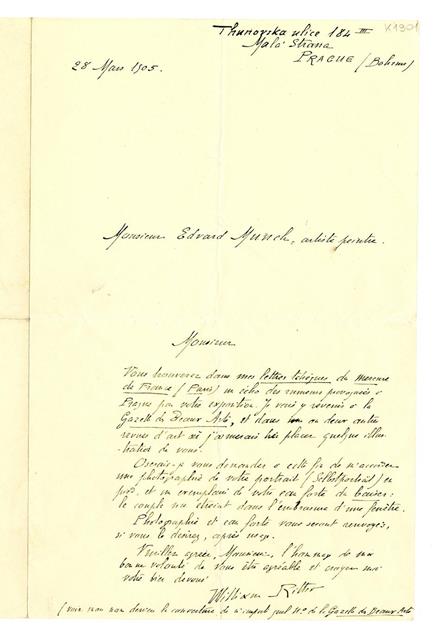 K1301
Thunovska ulice 184 III
Mala Strana
PRAGUE (Boheme)
28 Mars 1905.
Monsieur Edvard Munch, artiste peintre.
Monsieur
Vous trouverez dans mes lettres tchèques du mercure
de France (Paris) un écho des rumeurs provoquées à
Prague par votre exposition. J'y reviens à la
Gazette des Beaux Arts, et dans un ou deux autres
revues d'art où j'aimerais placer quelque illus-
tration de vous.
Oserais-je vous demander à cette fin de m'accorder
une photographie de votre portrait (Selbstportrait) en
pied, et un exemplaire de votre eau forte du baiser:
le couple nu debout dans l'embrasure d'une fenêtre.
Photographie et eau forte vous seront renvoyés,
si vous le désirez, après usage.
Veuillez agréer, Monsieur, l'hommage de ma
bonne volonté de vous être agréable et croyez moi
votre bien dévoué
William Ritter
(voir mon nom dessus la couverture de n'importe quel No. de la Gazette des Beaux Arts